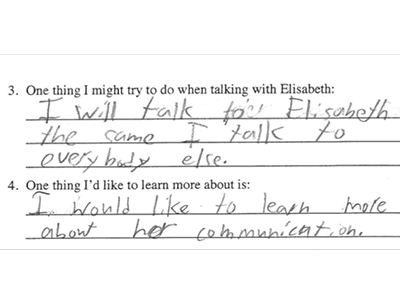 3. One thing I might try to do when talking with Elisabeth:
I will talk to Elisabeth
the same I talk to
everybody else.
4. One thing I'd like to learn more about is:
I would like to learn more
about her communication.